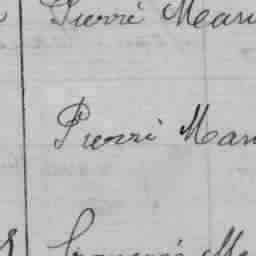 Pierre Mari
Pierre Mari
François Ma